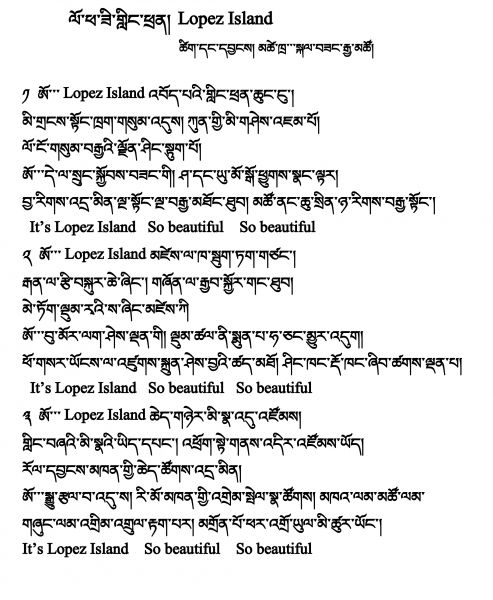 ལོ་ཕ་ཟི་གླིང་ཕྲན། Lopez Island
ཚིག་དང་དབྱངས། མཚོ་ཁྲ་་་སྐལ་བཟང་རྒྱ་མཚོ།
༡ ཨོ་་་ Lopez Island འབོད་པའི་གླིང་ཕྲན་ཆུང་ངུ་།
མི་གྲངས་སྟོང་ཕྲག་གསུམ་འདུས། ཀུན་གྱི་མི་གཤིས་འཇམ་པོ།
ལོ་ངོ་གསུམ་བརྒྱའི་ལྗོན་ཤིང་སྟུག་པོ།
ཨོ་་་དེ་ལ་སྲུང་སྐྱོབས་བཟང་གི། ཤ་དང་ཡུ་མོ་སྒོ་ཕྱུགས་སྣང་ལྟར།
བྱ་རིགས་འདྲ་མིན་ལྔ་སྟོང་ལྔ་བརྒྱ་མཐོང་ཐུབ། མཚོ་ནང་ཆུ་སྲིན་ཉ་རིགས་བརྒྱ་སྟོང་།
It's Lopez Island So beautiful So beautiful
༢ ཨོ་་་ Lopez Island མཛེས་ལ་ཁ་སྡུག་ཏག་གཙང་།
རྒན་ལ་རྩི་བསྐུར་ཆེ་ཞིང་། གཞོན་ལ་རྒྱབ་སྐྱོར་གང་ཐུབ།
མེ་ཏོག་ལྡུམ་རའི་ས་ཞིང་མཛེས་ཀི
ཨོ་་་བུ་མོར་ལག་ཤེས་ལྡན་གི། ལྡུམ་ཚལ་ནི་སྨུན་པ་ཧ་ཅང་མྱུར་འདུག།
ཕོ་གསར་ཡོངས་ལ་འཛུགས་སྐྲུན་ཤེས་བྱའི་ཚད་མཐོ། ཤིང་ཁང་རྡོ་ཁང་ཞིབ་ཚགས་ལྡན་པ།
It's Lopez Island So beautiful So beautiful
༣ ཨོ་་་ Lopez Island ཆེད་གཉེར་མི་སྣ་འདུ་འཛོམས།
གླིང་བཞའི་མི་སྣའི་ཡིད་དབང་། འཕྲོག་སྟེ་གནས་འདིར་འཛོམས་ཡོད།
རོལ་དབྱངས་མཁན་གྱི་ཆེད་ཚོགས་འདྲ་མིན།
ཨོ་་་སྒྱུ་རྩལ་བ་འདུ་ས། རི་མོ་མཁན་གྱི་འགྲེམ་སྤེལ་སྣ་ཚོགས། མཁའ་ལམ་མཚོ་ལམ་
གཞུང་ལམ་འགྲིམ་འགྲུལ་རྟག་པར། མགྲོན་པོ་ཕར་འགྲོ་ཡུལ་མི་ཚུར་ཡོང་།
It's Lopez Island So beautiful So beautiful